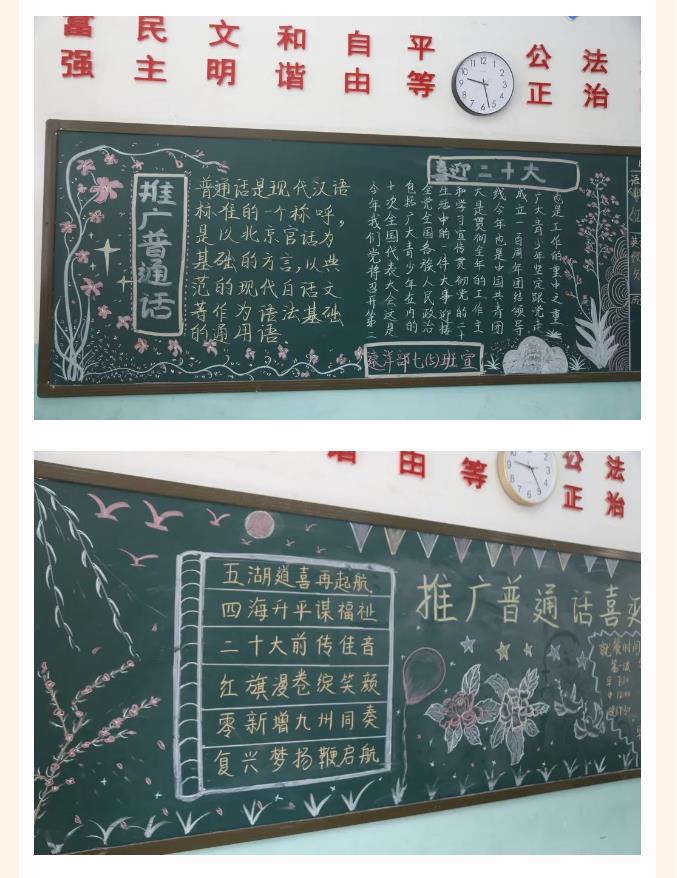 富 民 文 和 自 平 公 法
强 主 明 谐 由 等 正 治
推广普通话
普通话是现代汉语
标准的一个称呼,
是以北京官话为
基础的方言,以典
范的现代白话文
等作为语法基础
的通用语.
喜迎二十大
也是工作的重中之重
广大青少年坚定跟党走
成立一百周年团结领导
线今年也是中国共青团
大是贯彻全年的工作主
和学习宣传贯彻党的二十
生活中的一件大事迎接
全党全国各族人民政治
包括广大青少年在内的
十次全国代表大会这是
今年我们党将召开第二
班宣
由 等 公 法
正 治
五湖道喜再起航
四海升平谋福祉
二十大前传佳音
红旗漫卷绽笑颜
零新增九州同奏
复兴梦扬鞭启航
推广普通话喜迎